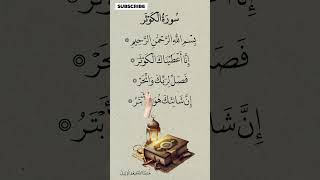 SUBSCRIBE
سُورَةُ الْكَوْثَر
بِسْمِ اللَّهِ الرَّحْمَٰنِ الرَّحِيمِ
إِنَّا أَعْطَيْنَاكَ الْكَوْثَرَ
فَصَلِّ لِرَبِّكَ وَانْحَرْ
إِنَّ شَانِئَكَ هُوَ الْأَبْتَرُ